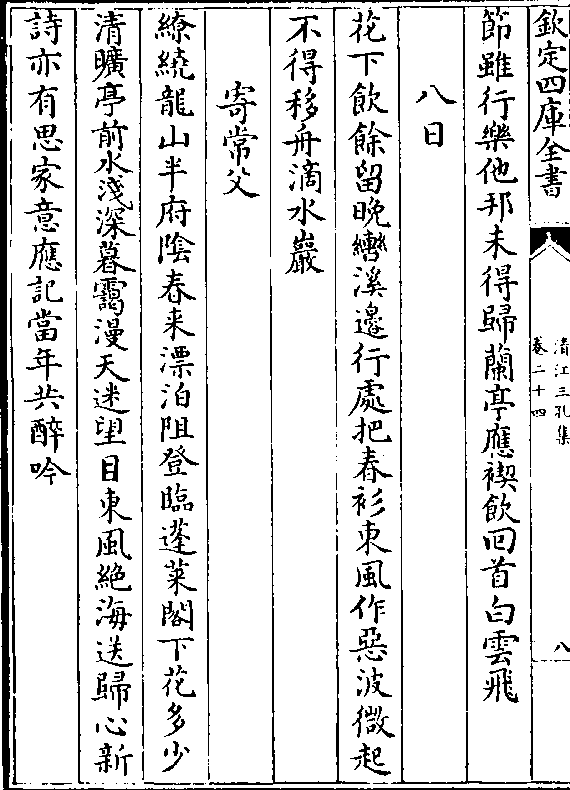 欽定四庫全書
清江三孔集
卷二十四
八
節雖行樂他邦未得歸蘭亭應禊飲回首白雲飛
八日
花下飲餘留晚轡溪邊行處把春衫東風作惡波微起
不得移舟滴水巖
寄常父
繚繞龍山半府陰春来漂泊阻登臨蓬萊閣下花多少
清曠亭前水淺深暮靄漫天迷望目東風絶海送歸心新
詩亦有思家意應記當年共醉吟